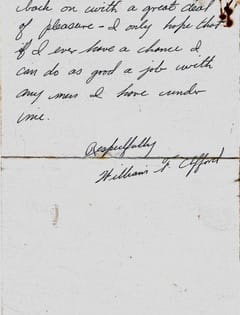 back on with a great deal
of pleasure - I only hope that
if I ever have a chance I
can do as good a job with
any men I have under
me.
Respectfully
William F. Clifford